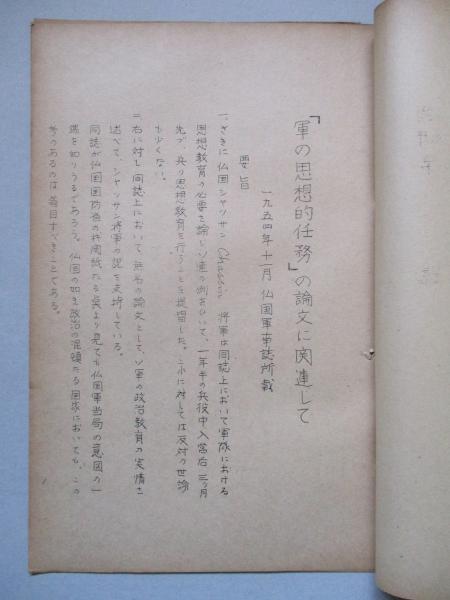 「軍の思想的任務」の論文に関連して
一九五四年十一月 仏国軍事誌所載
要旨
一、さきに仏国シャッサン Chassin 将軍は同誌上において軍隊における
思想教育の必要を論じソ連の例をひいて、一年半の兵役中入営后三ヶ月
先づ、専ら思想教育を行うことを提唱した。これに対しては反対の世論
も少くない。
二、右に対し同誌上において無名の論文として、ソ軍の政治教育の実情を
述べて、シャッサン将軍の説を支持している。
同誌が仏国国防省の機関紙たる点より見ても仏国軍当局の意図の一
端を知りうるであらう。仏国の如き政治の混頓たる国家においても、この
考のあるのは着目すべきことである。